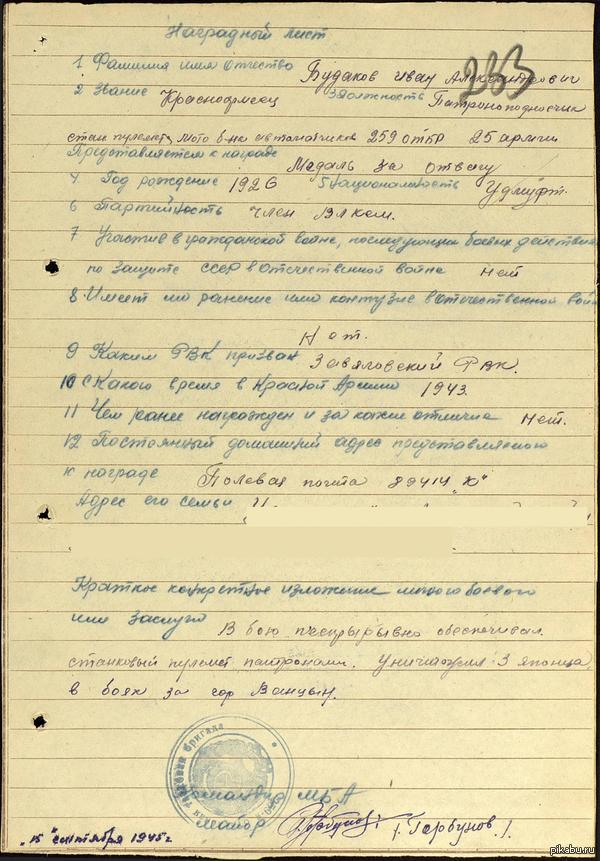 Наградный лист
263
1 Фамилия имя отчество Будаков Иван Александрович
2 Звание Красноармеец 3 Должность Патроноподносчик
стан пулемета, мото б-на автоматчиков 259 отбр 25 армии
Представляется к награде Медаль за отвагу
4 Год рождение 1926 5 Национальность Удмурт.
6 Партийность член ВЛКСМ.
7 Участие в гражданской войне, последующих боевых действиях
по защите СССР в отечественной войне нет
8 Имеет ли ранение или контузие в отечественной войне
Нет.
9 Каким РВК призван Завяловский РВК.
10 С какого время в Красной Армии 1943.
11 Чем ранее награжден и за какие отличие нет.
12 Постоянный домашний адрес представляемого
к награде Полевая почта 89414 "Ю"
Адрес его семьи
Краткое конкретное изложение личного боевого
или заслуги В бою непрырывно обеспечивал
станковый пулемет патронами. Уничтожил 3 японца
в боях за гор Ванцын.
бригада
Командир МБА
Майор Горбунов
"15" сентября 1945 г
pikabu.ru